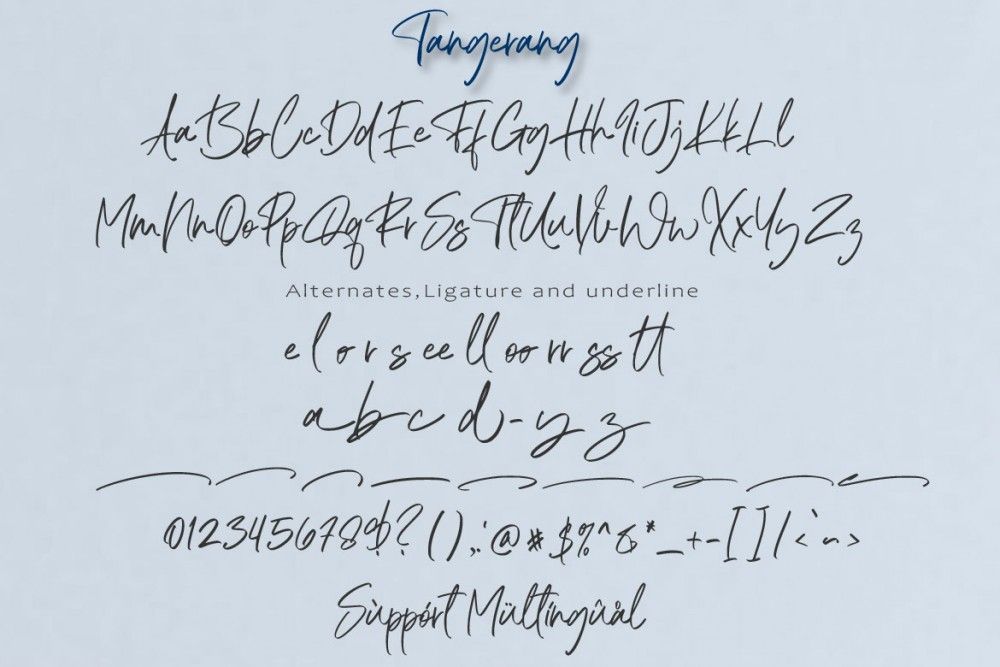 Tangerang
AaBbCcDdEeFfGgHhIiJjKkLl
MmNnOoPpQqRrSsTtUuVvWwXxYyZz
Alternates,Ligature and underline
e l o r s ee ll oo rr ss tt
a b c d - y z
0123456789$?(),.:@#$%^&*_+-[]/<`~>
Sùppórt Mültíngûål